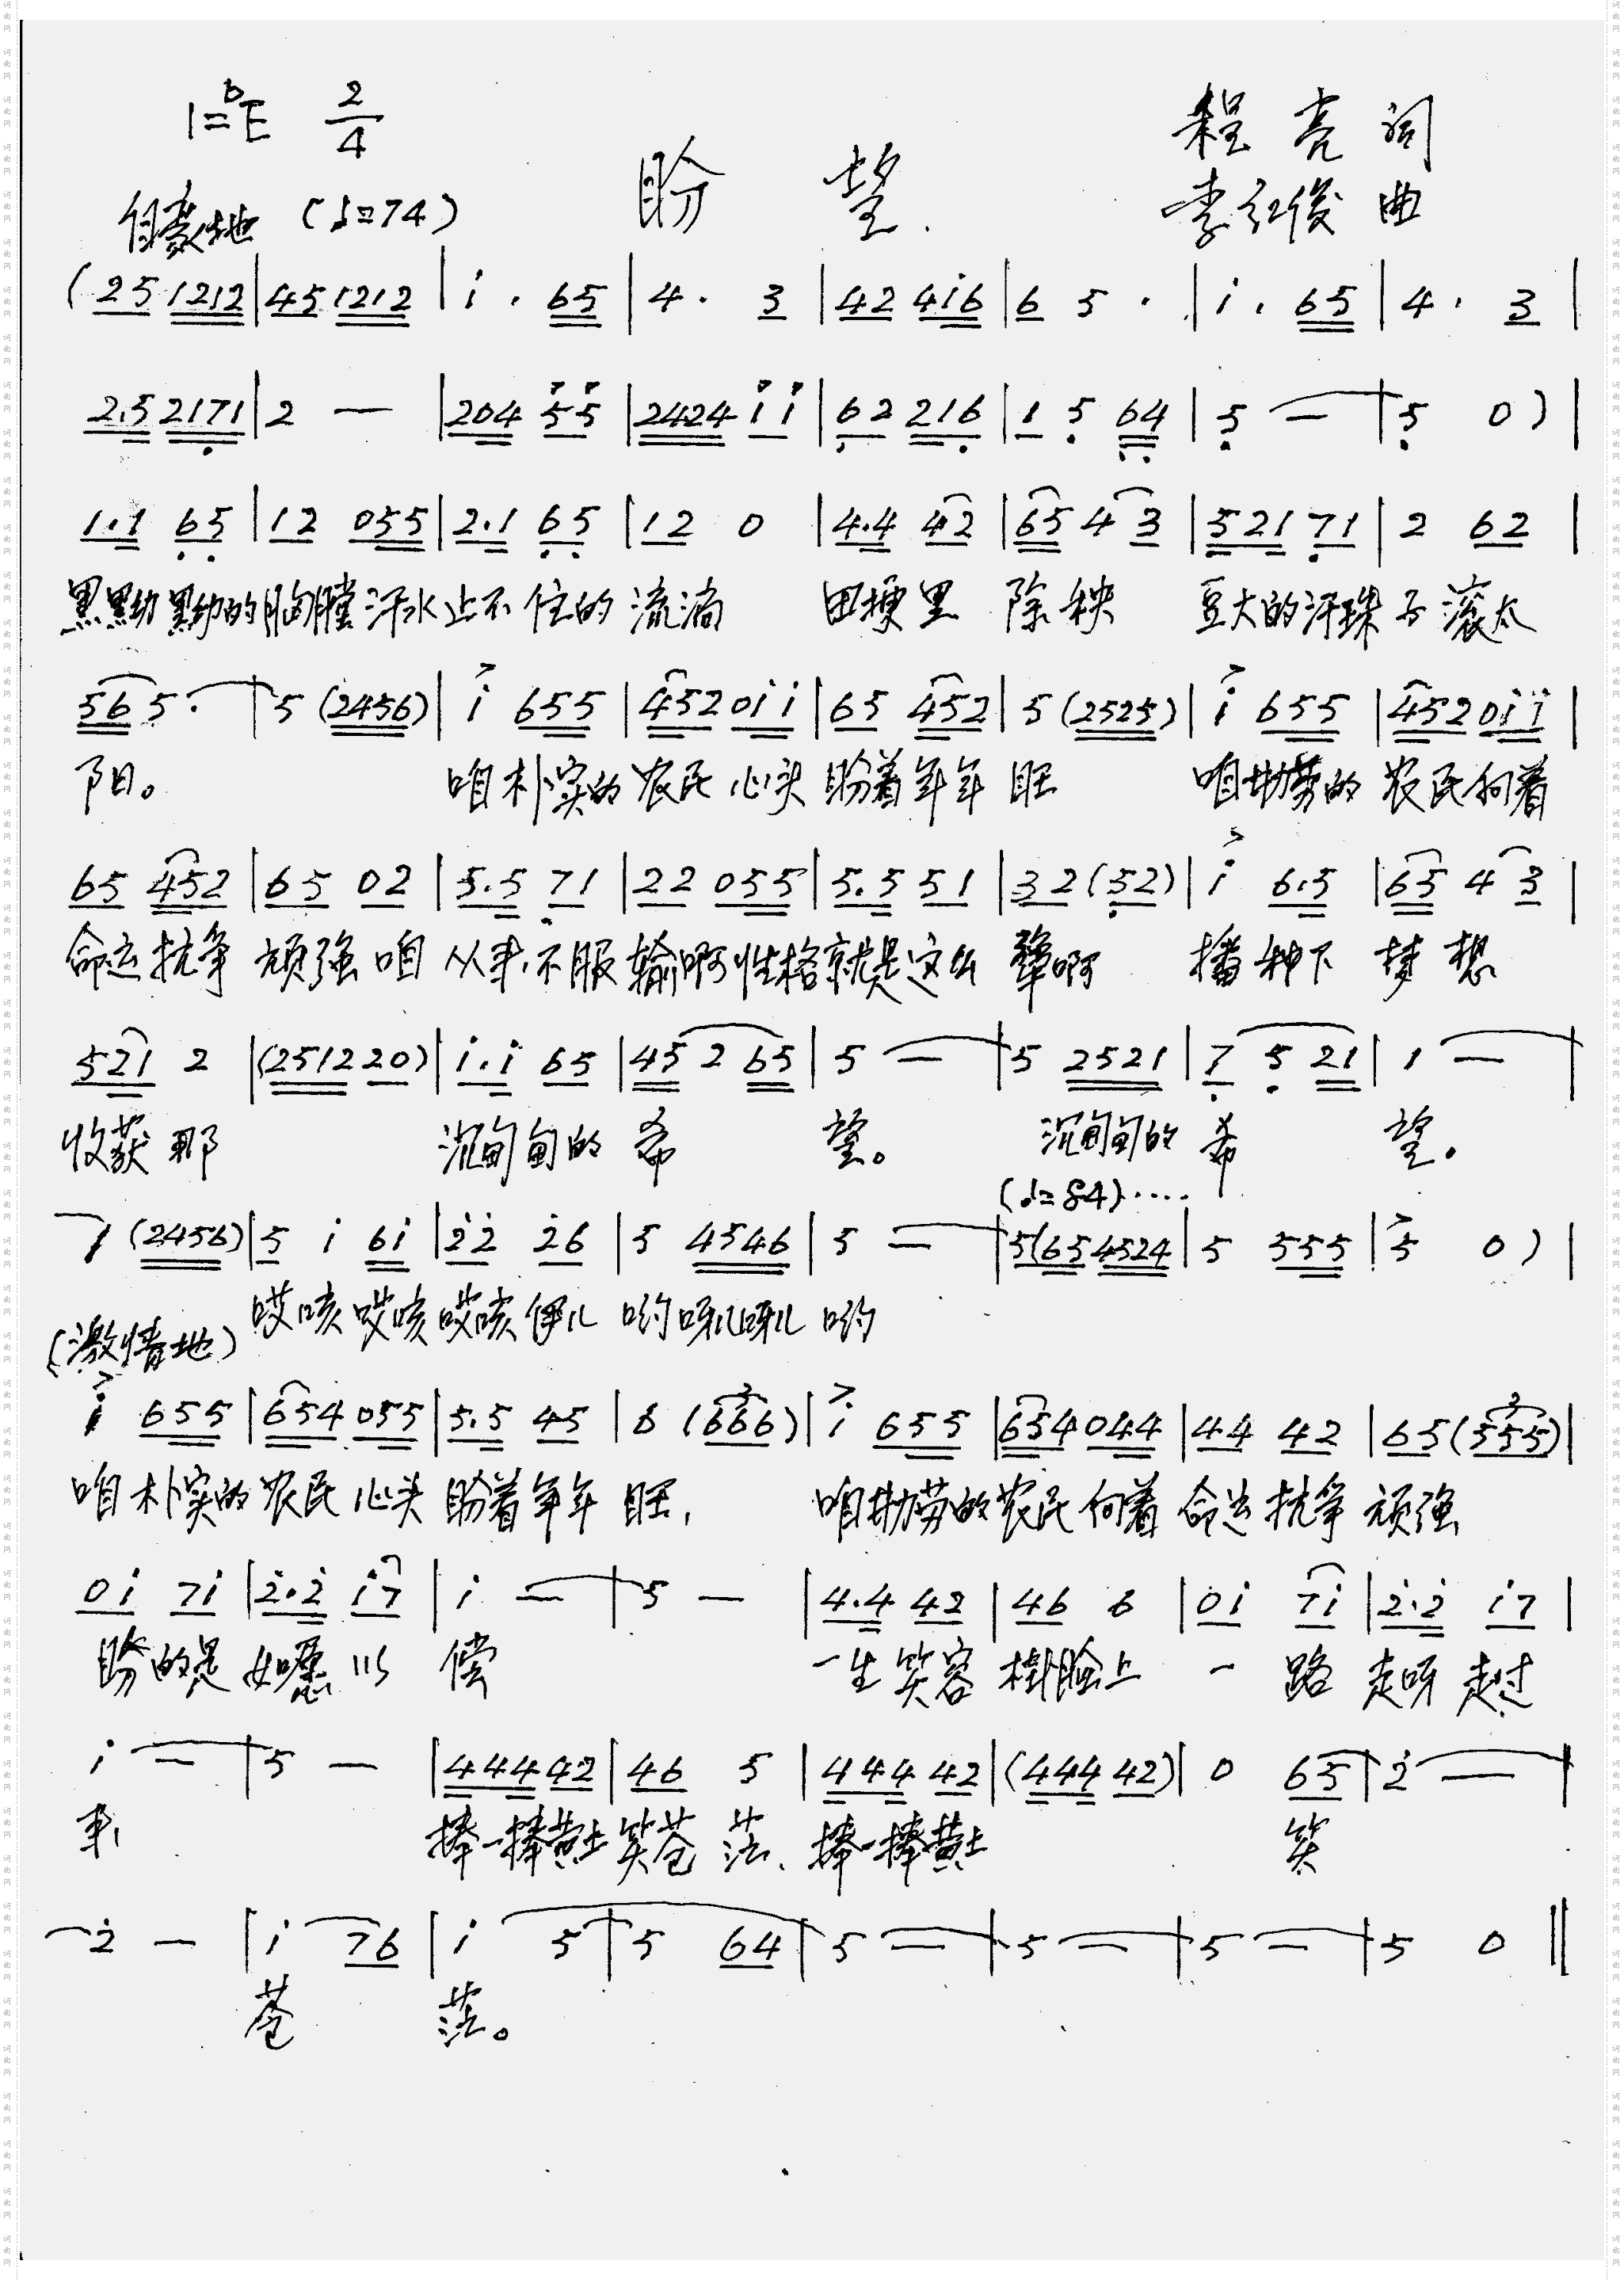 1=♭E 2/4
盼 望
程 亮 词
李红俊 曲
自豪地 (♩=74)
(25 1212|45 1212|i· 65|4· 3|42 4i6|6 5·|i· 65|4· 3|
2.5 2171|2 —|204 55|2424 ii|62 216|1 5 64|5 —|5 0)|
1.1 65|12 055|2.1 65|12 0|4.4 42|65 4 3|521 71|2 62|
黑黝黝的胸膛汗水止不住的流淌 田埂里 除秧 豆大的汗珠子滚太
56 5·|5 (2456)|i 655|452 0ii|65 452|5 (2525)|i 655|452 0ii|
阳。 咱朴实的农民心头盼着年年旺 咱勤劳的农民向着
65 452|65 02|5.5 71|22 055|5.5 51|32 (52)|i 6.5|65 4 3|
命运抗争 顽强咱 从来不服输啊性格就是这么犟啊 播种下 梦想
521 2|(2512 20)|i.i 65|45 2 65|5 —|5 2521|7 5 21|1 —|
收获那 沉甸甸的希 望。 沉甸甸的希 望。
(♩=84)····
1 (2456)|5 i 6i|22 26|5 4546|5 —|5(65 4524|5 555|5 0)|
哎咳哎咳哎咳伊儿哟呀儿呀儿哟
(激情地)
i 655|654 055|5.5 45|6 (666)|i 655|654 044|44 42|65 (555)|
咱朴实的农民心头盼着年年旺, 咱勤劳的农民向着命运抗争顽强
0i 7i|2.2 i7|i —|5 —|4.4 42|46 6|0i 7i|2.2 i7|
盼的是如愿以偿 一生笑容 脸上 一路走呀走过
i —|5 —|444 42|46 5|444 42|(444 42)|0 65|2 —|
来, 捧一捧黄土笑苍茫、捧一捧黄土 笑
2 —|i 76|i 5|5 64|5 —|5 —|5 —|5 0‖
苍 茫。
词曲网